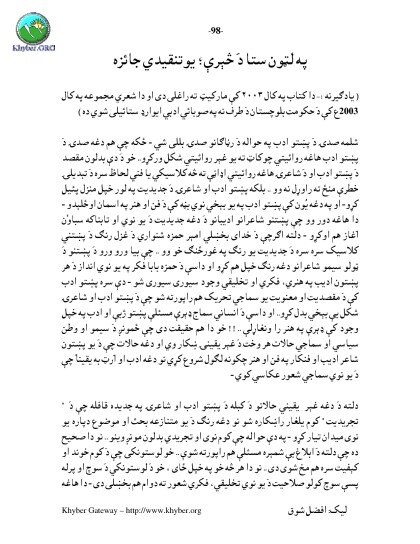 Khyber.ORG
-98-
په لټون ستا دَ څېرې؛ يو تنقيدي جائزه
( يادګيرنه :- دا کتاب په کال ٢٠٠٣ کې مارکيټ ته راغلى دى او دا شعري مجموعه په کال
2003ع کې دَ حکومت بلوچستان دَ طرف نه په صوبائي ادبي ايوارډ ستائيلى شوې ده )
شلمه صدۍ دَ پښتو ادب په حواله دَ رڼاګانو صدۍ بللى شي - ځکه چې هم دغه صدۍ دَ
پښتو ادب هاغه روائيتي چوکاټ ته يو غير روائيتي شکل ورکړو.. خو دَ دې بدلون مقصد
دَ پښتو ادب او شاعرۍ هاغه روائيتي اډاڼې ته څه کلاسيکي يا فني لحاظ سره دَ تبديلۍ
خطرې منځ ته راوړل نه وو .. بلکه پښتو ادب او شاعرۍ دَ جديديت په لور خپل منزل پئيل
کړو- او په دغه يُون کې پښتو ادب په يو بيخي نوي بڼه کې دَ فن او هنر په اسمان اوځليدو -
دا هاغه دور وو چې پښتنو شاعرانو اديبانو دَ دغه جديديت دَ يو نوي او تابناکه سباؤن
آغاز هم اوکړو - دلته اګرچې دَ خداى بخښلي امير حمزه شنوارى دَ غزل رنګ دَ پښتنې
کلاسيک سره سره دَ جديديت يو رنګ په غورځنګ خو وو .. چې بيا ورو ورو دَ پښتنو دَ
ټولو سيمو شاعرانو دغه رنګ خپل هم کړو او داسې دَ حمزه بابا فکر په يو نوي انداز دَ هر
پښتون اديب په هنرې، فکري او تخليقي وجود سيورى سيورى شو - دې سره پښتو ادب
کې دَ مقصديت او معنويت يو سماجي تحريک هم راپورته شو چې دَ پښتو ادب او شاعرۍ
شکل يې بيخي بدل کړو.. او داسې دَ انساني سماج ډېرې مسئلې پښتو ژبې او ادب په خپل
وجود کې ډېرې په هنر را ونغاړلې ..!! خو دا هم حقيقت دى چې څمونږ دَ سيمو او وطن
سياسي او سماجي حالات هر وخت دَ غير يقينۍ ښکار وي او دغه حالات چې دَ يو پښتون
شاعر اديب او فنکار په فن او هنر چګونه لګول شروع کړي نو دغه ادب او آرټ به يقيناً چې
دَ يو نوي سماجي شعور عکاسي کوي-
دلته دَ دغه غير يقيني حالاتو دَ کبله دَ پښتو ادب او شاعرۍ په جديده قافله چې دَ "
تجريديت" کوم يلغار رانښکاره شو نو دغه رنګ دَ يو متنازعه بحث او موضوع دپاره يو
نوى ميدان تيار کړو - په دې حواله چې کوم نوى او تجريدي بدلون مونږ وينو .. نو دا صحيح
ده چې دلته دَ ابلاغ بې شمېره مسئلې هم راپورته شوې.. خو لوستونکى چې دَ کوم خوند او
کيفيت سره هم مخ شوى دى.. نو دا هر څه خو په خپل ځاى ، خو دَ لوستونکي دَ سوچ او پرله
پسې سوچ کولو صلاحيت دَ يو نوي تخليقي، فکري شعور ته دوام هم بخښلى دى - دا هاغه
Khyber Gateway – http://www.khyber.org
ليک: افضل شوق